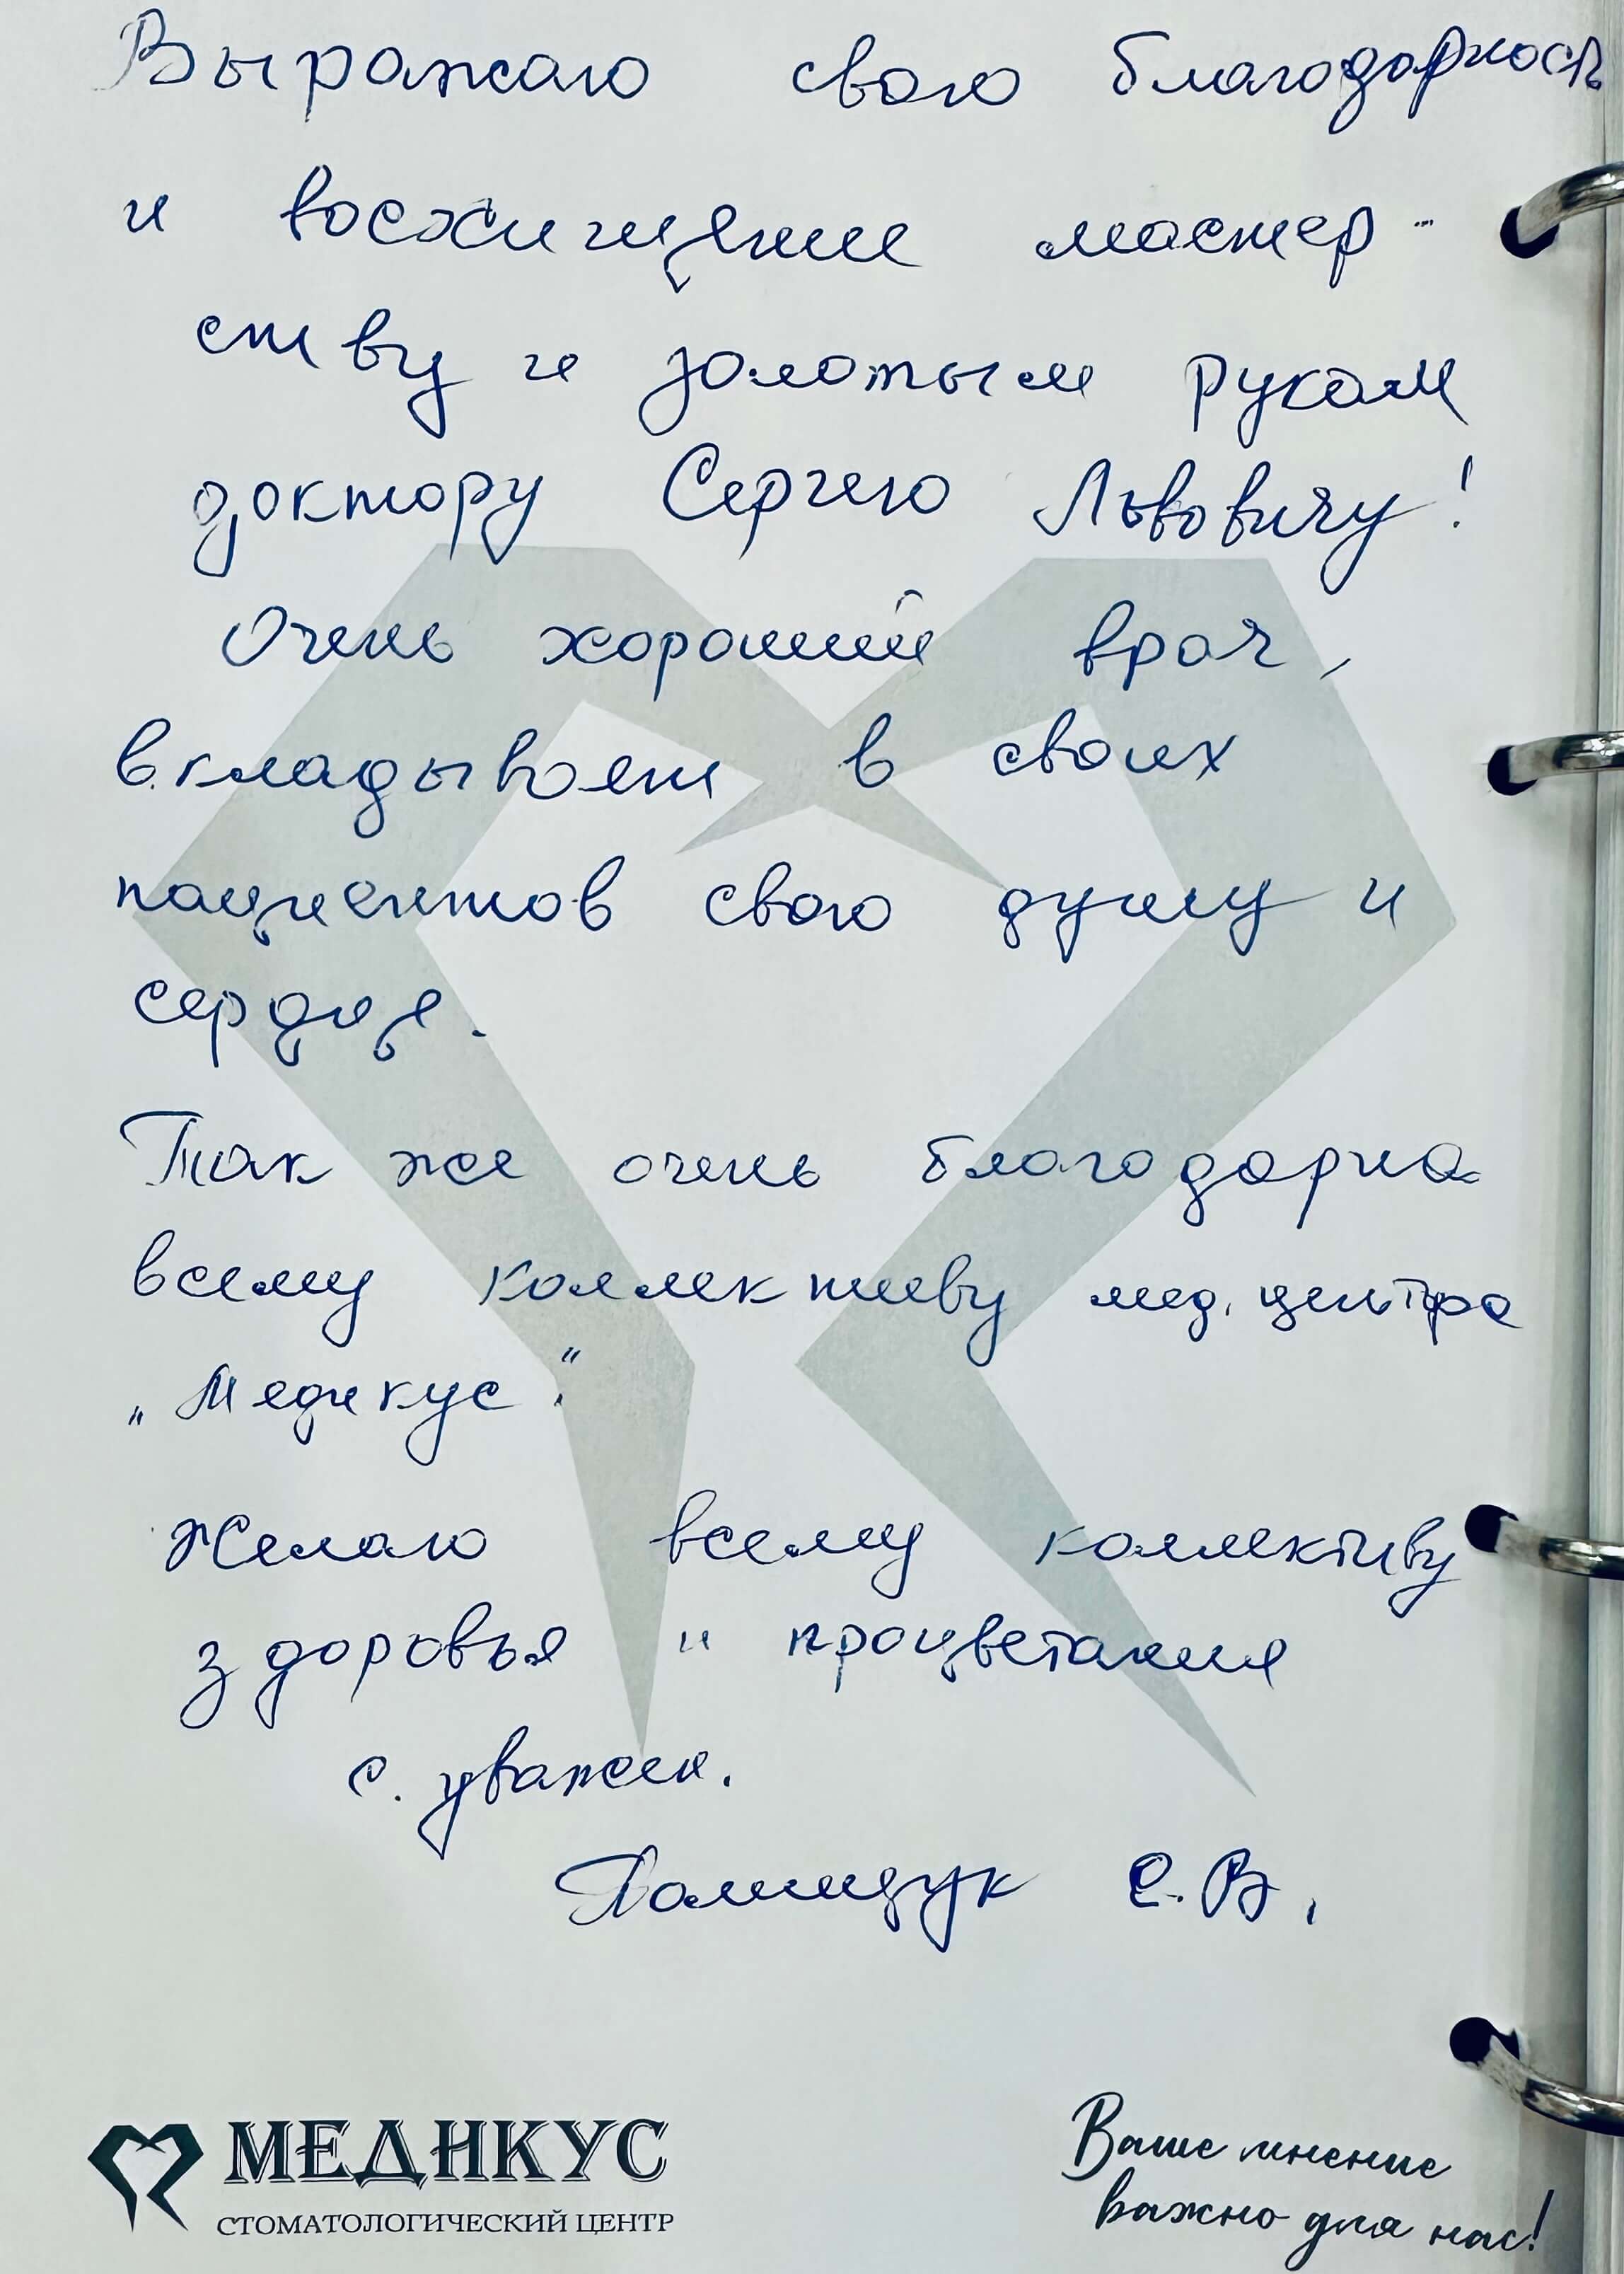 Выражаю свою благодарность
и восхищение мастер-
ству и золотым рукам
доктору Сергею Львовичу!
Очень хороший врач,
вкладывает в своих
пациентов свою душу и
сердце.
Так же очень благодарна
всему коллективу мед. центра
„Медикус".
Желаю всему коллективу
здоровья и процветания
с. уважен.
Полищук Е.В.
МЕДИКУС
СТОМАТОЛОГИЧЕСКИЙ ЦЕНТР
Ваше мнение
важно для нас!